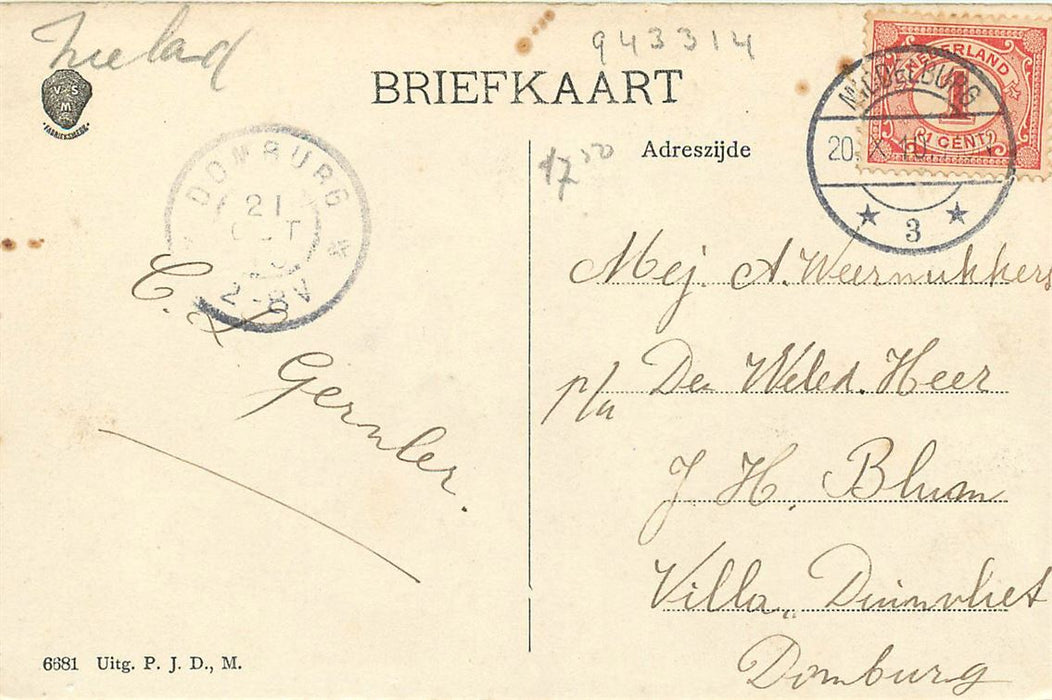 943314
BRIEFKAART
V S
M
FABRIEKSMERK
NEDERLAND
1
1 CENT
MIDDELBURG
20. X 10. V
3
DOMBURG
21
OCT
2-8V
Adreszijde
17 50
Mej. A.
p/a De Weled. Heer
J H. Blum
Villa „Duinvliet
Domburg
C. J. Gernler.
6681 Uitg. P. J. D., M.